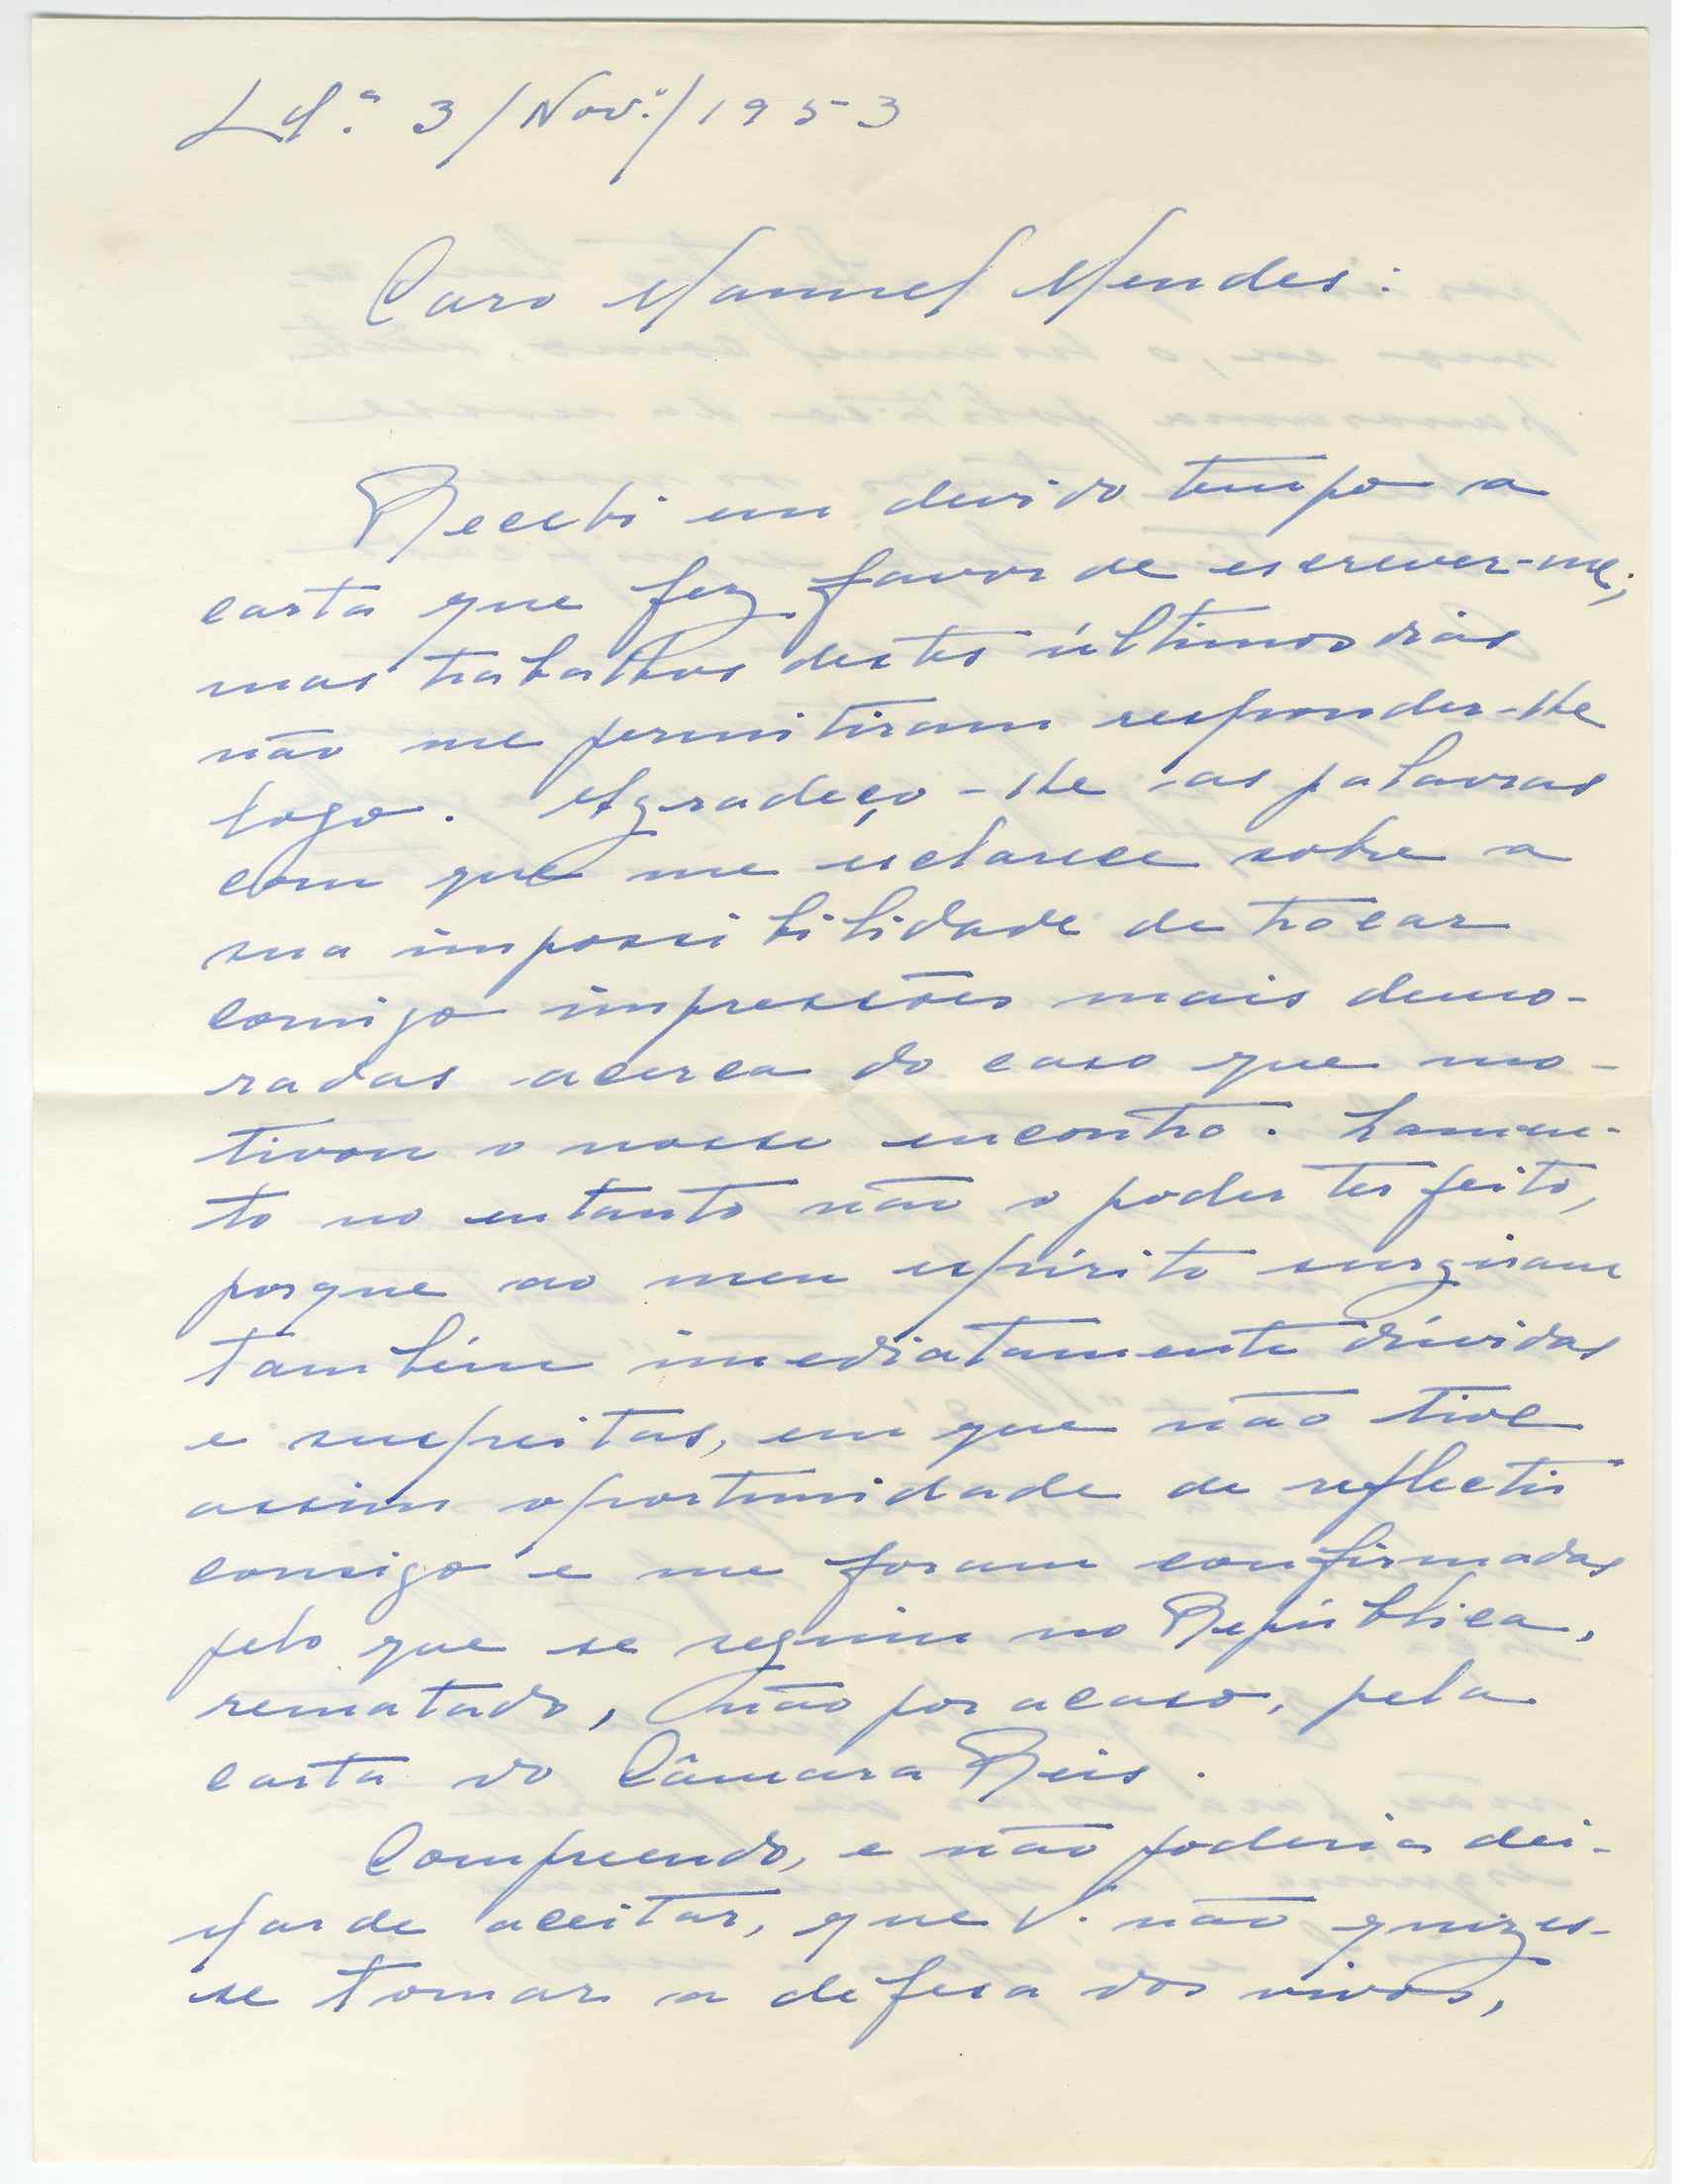 Lxª 3/Nov.º/1953
Caro Manuel Mendes:
Recebi em devido tempo a
carta que fez favor de escrever-me;
mas trabalhos destes últimos dias
não me permitiram responder-lhe
logo. Agradeço-lhe as palavras
com que me esclarece sobre a
sua impossibilidade de trocar
comigo impressões mais demo-
radas acerca do caso que mo-
tivou o nosso encontro. Lamen-
to no entanto não o poder ter feito,
porque ao meu espírito surgiram
também imediatamente dúvidas
e suspeitas, em que não tive
assim oportunidade de reflectir
consigo e me foram confirmadas
pelo que se seguiu no República,
rematado, não por acaso, pela
carta do Câmara Reis.
Compreendo, e não poderia dei-
xar de aceitar, que V. não quizes-
se tomar a defesa dos vivos,